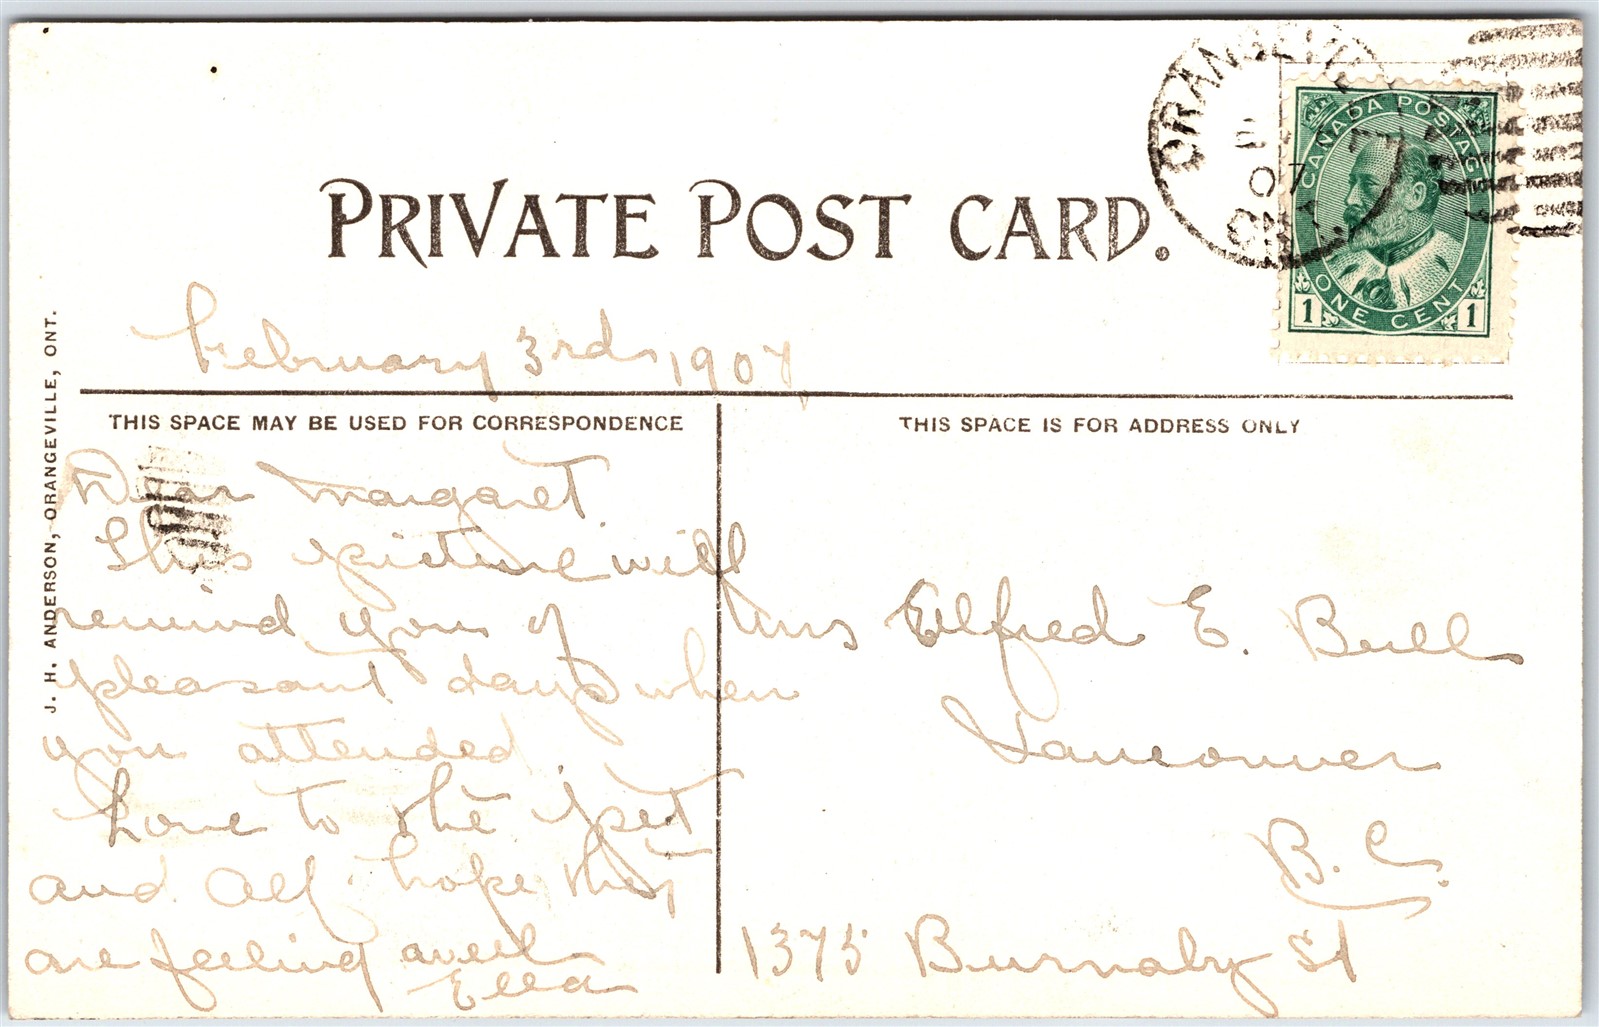 ORANGEVILLE
07
ONT.
CANADA POSTAGE
ONE CENT
1 1
PRIVATE POST CARD.
February 3rd 1907
J. H. ANDERSON, ORANGEVILLE, ONT.
THIS SPACE MAY BE USED FOR CORRESPONDENCE
THIS SPACE IS FOR ADDRESS ONLY
Dear Margaret
This picture will
remind you of
pleasant days when
you attended
Love to the pet
and Alf. hope they
are feeling well
Ella
Mrs Elfred E. Bull
Vancouver
B. C.
1375 Burnaby St